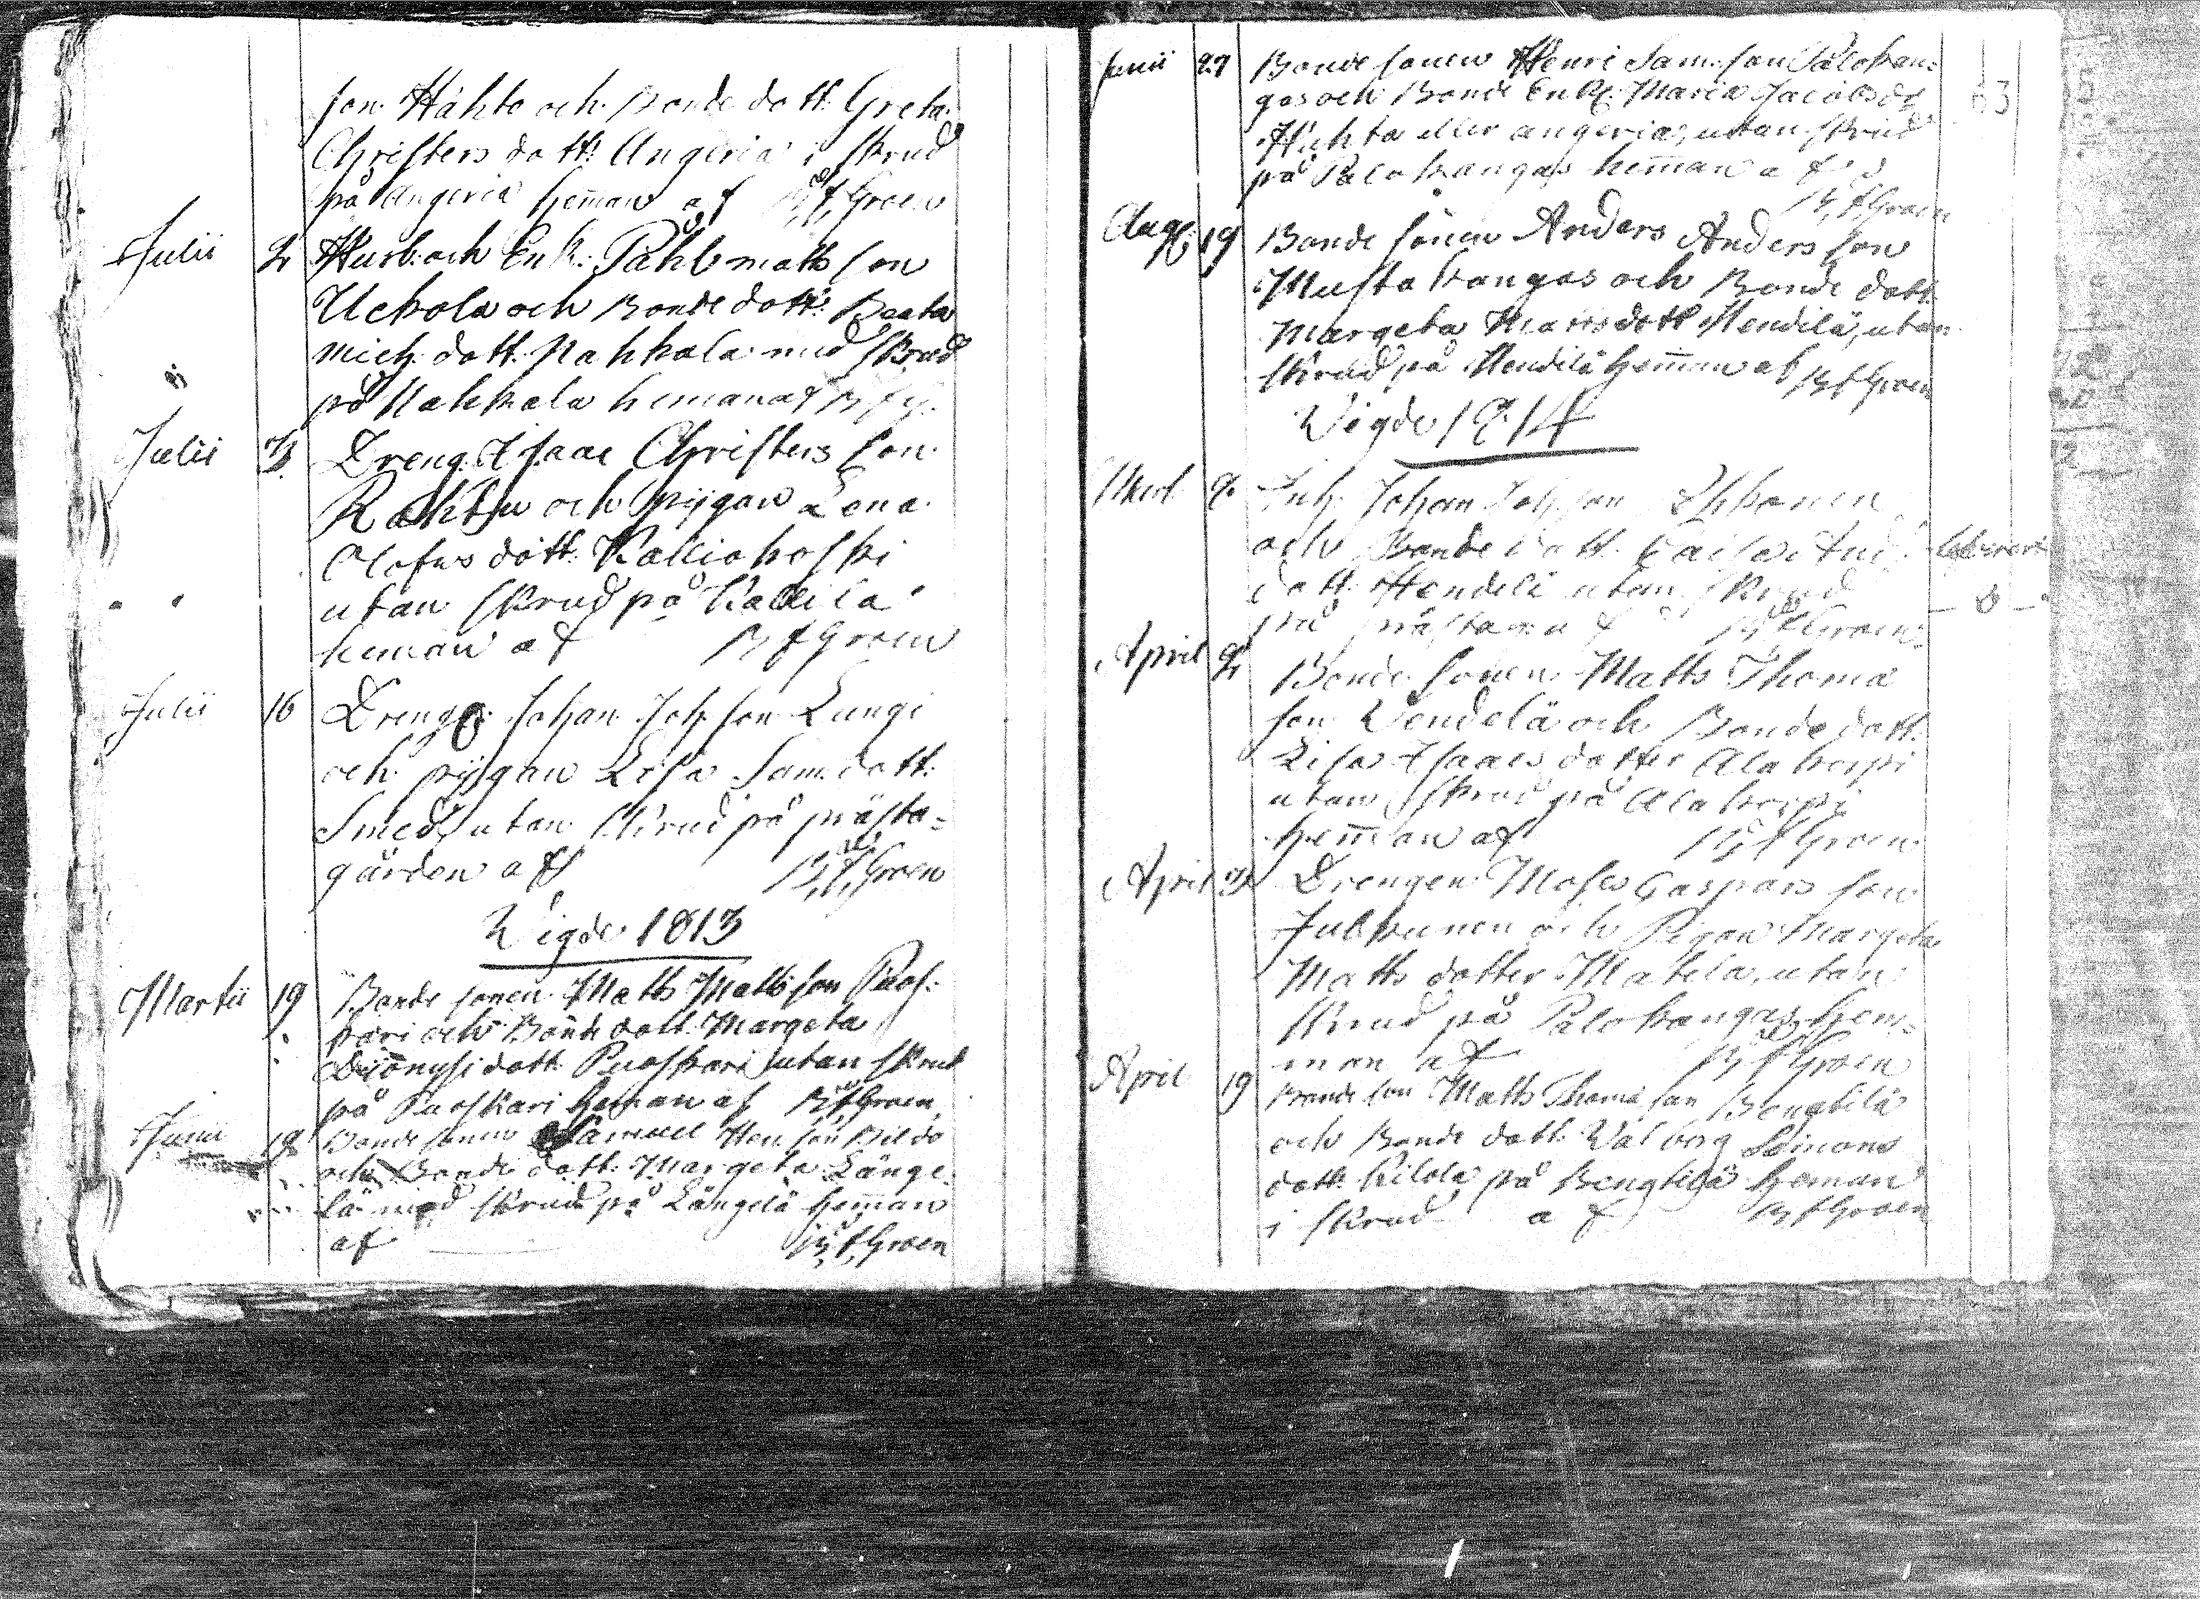 son Hähto och Bonde dott: Greta
Christers dott: Angeria i skrud
på Angeria heman af B, f, Groen
Julii 2 Husb: och Enk: Påhl matts son
Uckola och Bonde dott: Beata
mich. dott. Nahkola med skrud
på Nahkala hemanaf B f g.
Julii 3 Dreng Isaac Christers son
Rahku och pijgan Lena
Olofws dott: Kalliokoski
utan skrud på Kallila
heman af B f Groen
Julii 16 Dreng Johan Joh son Lungi
och pijgan Lisa Sam dott:
Smed, utan skrud på prästa-
gården af B, f, Groen
Wigde 1813
Martii 19 Bonde sonen Matts Mattsson Puos-
kari och Bonde dott. Margeta
Dionysi dott Puoskari utan skrud
på Puoskari heman af B f Groen
Junii 18 Bonde sonen Samuel Hen son
och Bonde dott: Margeta Länge
lä med skrud på Längelä heman
af B, f, Groen
Junii 27 Bonde sonen Henri Sam. son Palokan-
gas och Bonde Enk: Maria Jacobs d
Huhta eller angeria, utan skrud
på Palokangas heman af
B, f, Groen
63
Aug: 19 Bonde sonen Anders Anders son
Mustakangas och Bonde dott
Margeta Matts dott Hendilä, utan
skrud på Hendilä heman af B f Groen
Wigde 1814
Johan Joh son
och Bonde dott. Caisa And:
dott. Hendeli utan skrud
på prästag: af B f Groen
April 2 Bonde sonen Matts Thoma
son Wendelä och Bonde dott.
Lisa Isaacs dotter Alakorpi
utan skrud på Alakorpi
heman af B, f Groen
April 3 Drengen Moses Caspars son
Julkunen och Pigan Margeta
Matts dotter Matela, utan
skrud på Palokangas hem-
man af B f Groen
April 19 Bonde son Matts Thoma son Bengtilä
och Bonde dott. Walborg Simons
dott. Kilola på Bengtilä heman
i skrud af B f Groen